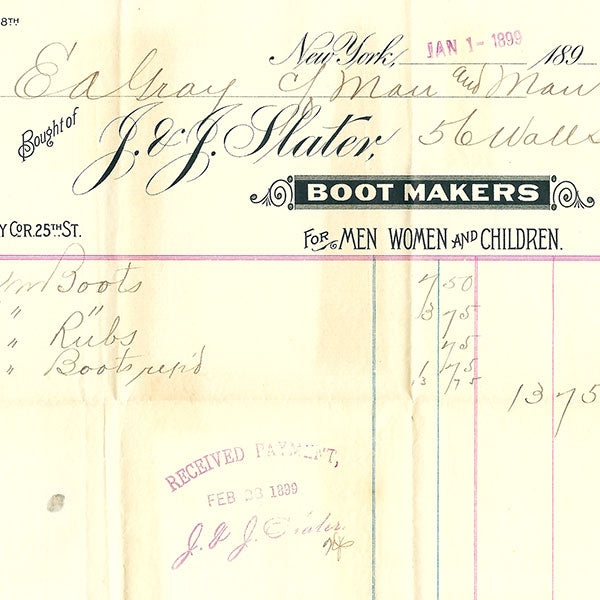 8TH
New York, JAN 1- 1899 189
Ed Gray c/ Man and Man
Bought of J. & J. Slater, 56 Wall S
BOOT MAKERS
Y COR. 25TH ST. FOR MEN WOMEN AND CHILDREN.
Boots 7 50
" " 3 75
" Rubs 75
" Boots rep'd 1 75
13 75 13 75
RECEIVED PAYMENT,
FEB 23 1899
J. & J. Slater.